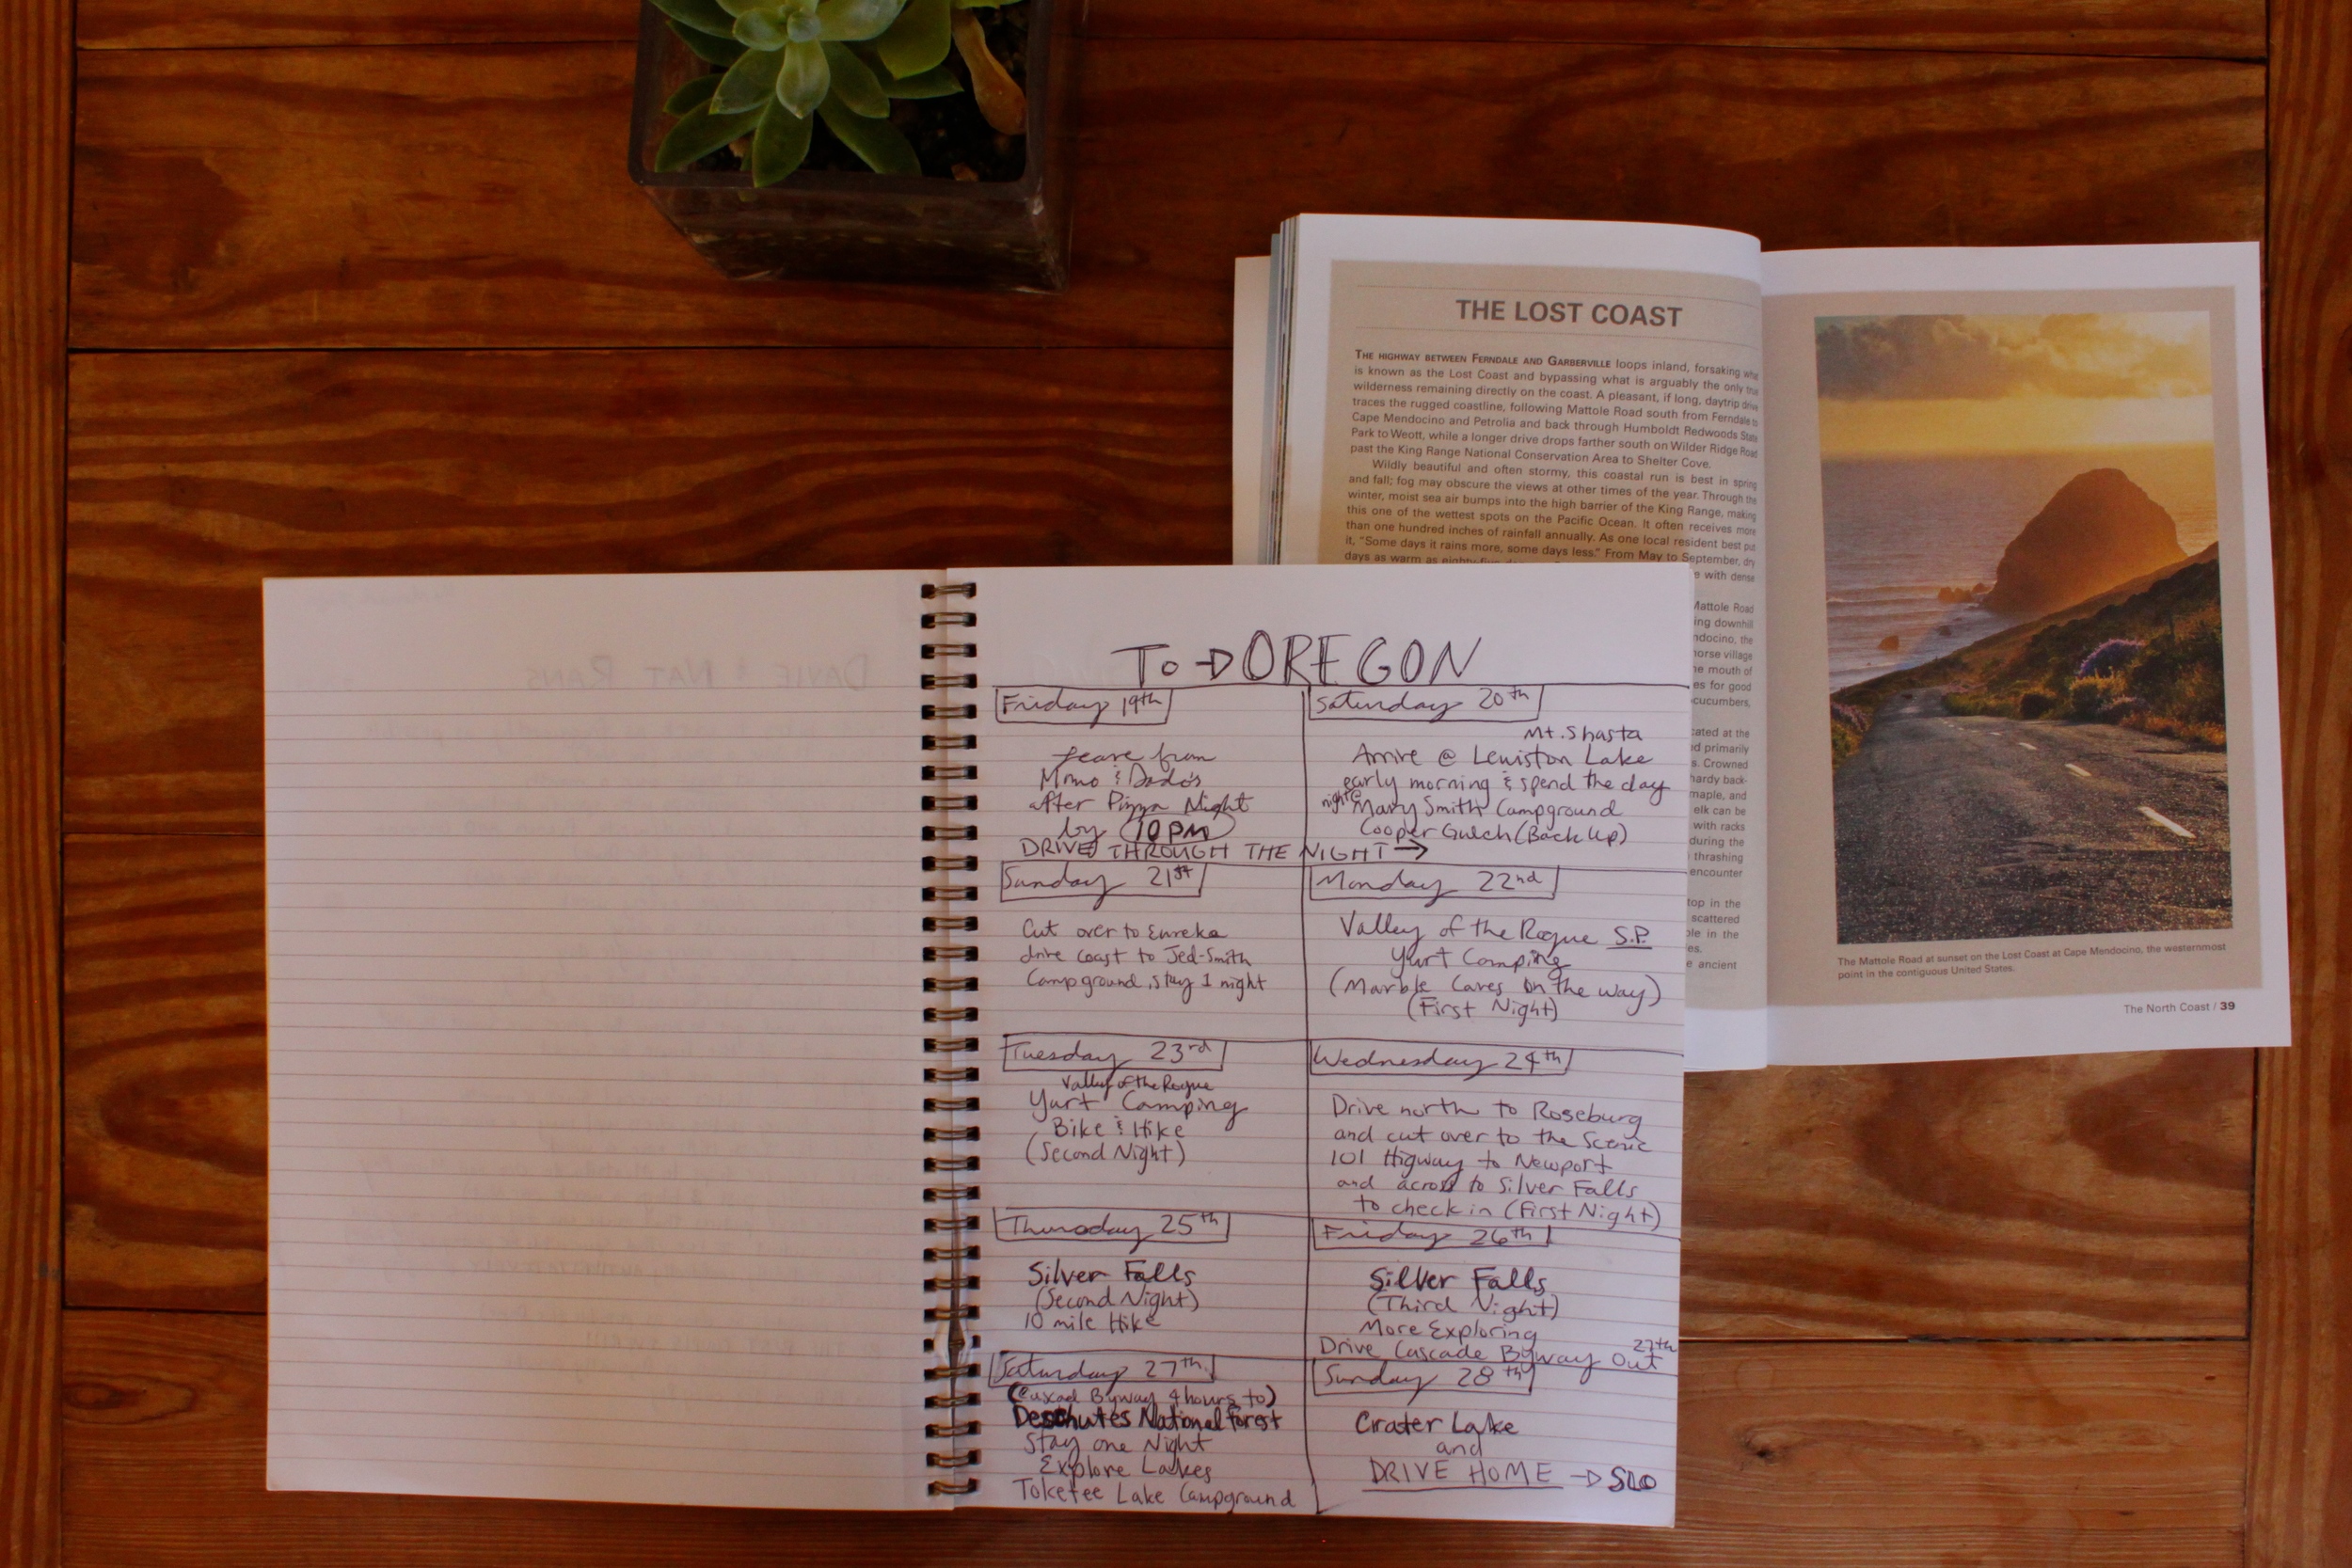 THE LOST COAST
THE HIGHWAY BETWEEN FERNDALE AND GARBERVILLE loops inland, forsaking what
is known as the Lost Coast and bypassing what is arguably the only true
wilderness remaining directly on the coast. A pleasant, if long, daytrip drive
traces the rugged coastline, following Mattole Road south from Ferndale to
Cape Mendocino and Petrolia and back through Humboldt Redwoods State
Park to Weott, while a longer drive drops farther south on Wilder Ridge Road
past the King Range National Conservation Area to Shelter Cove.
Wildly beautiful and often stormy, this coastal run is best in spring
and fall; fog may obscure the views at other times of the year. Through the
winter, moist sea air bumps into the high barrier of the King Range, making
this one of the wettest spots on the Pacific Ocean. It often receives more
than one hundred inches of rainfall annually. As one local resident best put
it, "Some days it rains more, some days less." From May to September, dry
days as warm as
with dense
Mattole Road
downhill
the
horse village
mouth of
es for good
cucumbers,
cated at the
d primarily
s. Crowned
hardy back-
maple, and
elk can be
with racks
during the
thrashing
encounter
top in the
scattered
in the
ancient
The Mattole Road at sunset on the Lost Coast at Cape Mendocino, the westernmost
point in the contiguous United States.
The North Coast / 39
To → OREGON
Friday 19th
leave from
Momo & Dado's
after Pizza Night
by 10 PM
DRIVE THROUGH THE NIGHT →
Saturday 20th
Mt. Shasta
Arrive @ Lewiston Lake
early morning & spend the day
night @ Mary Smith Campground
Cooper Gulch (Back Up)
Sunday 21st
Cut over to Eureka
drive coast to Jed-Smith
Campground, stay 1 night
Monday 22nd
Valley of the Rogue S.P.
Yurt Camping
(Marble Caves on the way)
(First Night)
Tuesday 23rd
Valley of the Rogue
Yurt Camping
Bike & Hike
(Second Night)
Wednesday 24th
Drive north to Roseburg
and cut over to the Scenic
101 Higway to Newport
and across to Silver Falls
to check in (First Night)
Thursday 25th
Silver Falls
(Second Night)
10 mile Hike
Friday 26th
Silver Falls
(Third Night)
More Exploring
Drive Cascade Byway Out 27th
Saturday 27th
Byway 4 hours to)
Deschutes National Forest
Stay one Night
Explore Lakes
Toketee Lake Campground
Sunday 28th
Crater Lake
and
DRIVE HOME → SLO